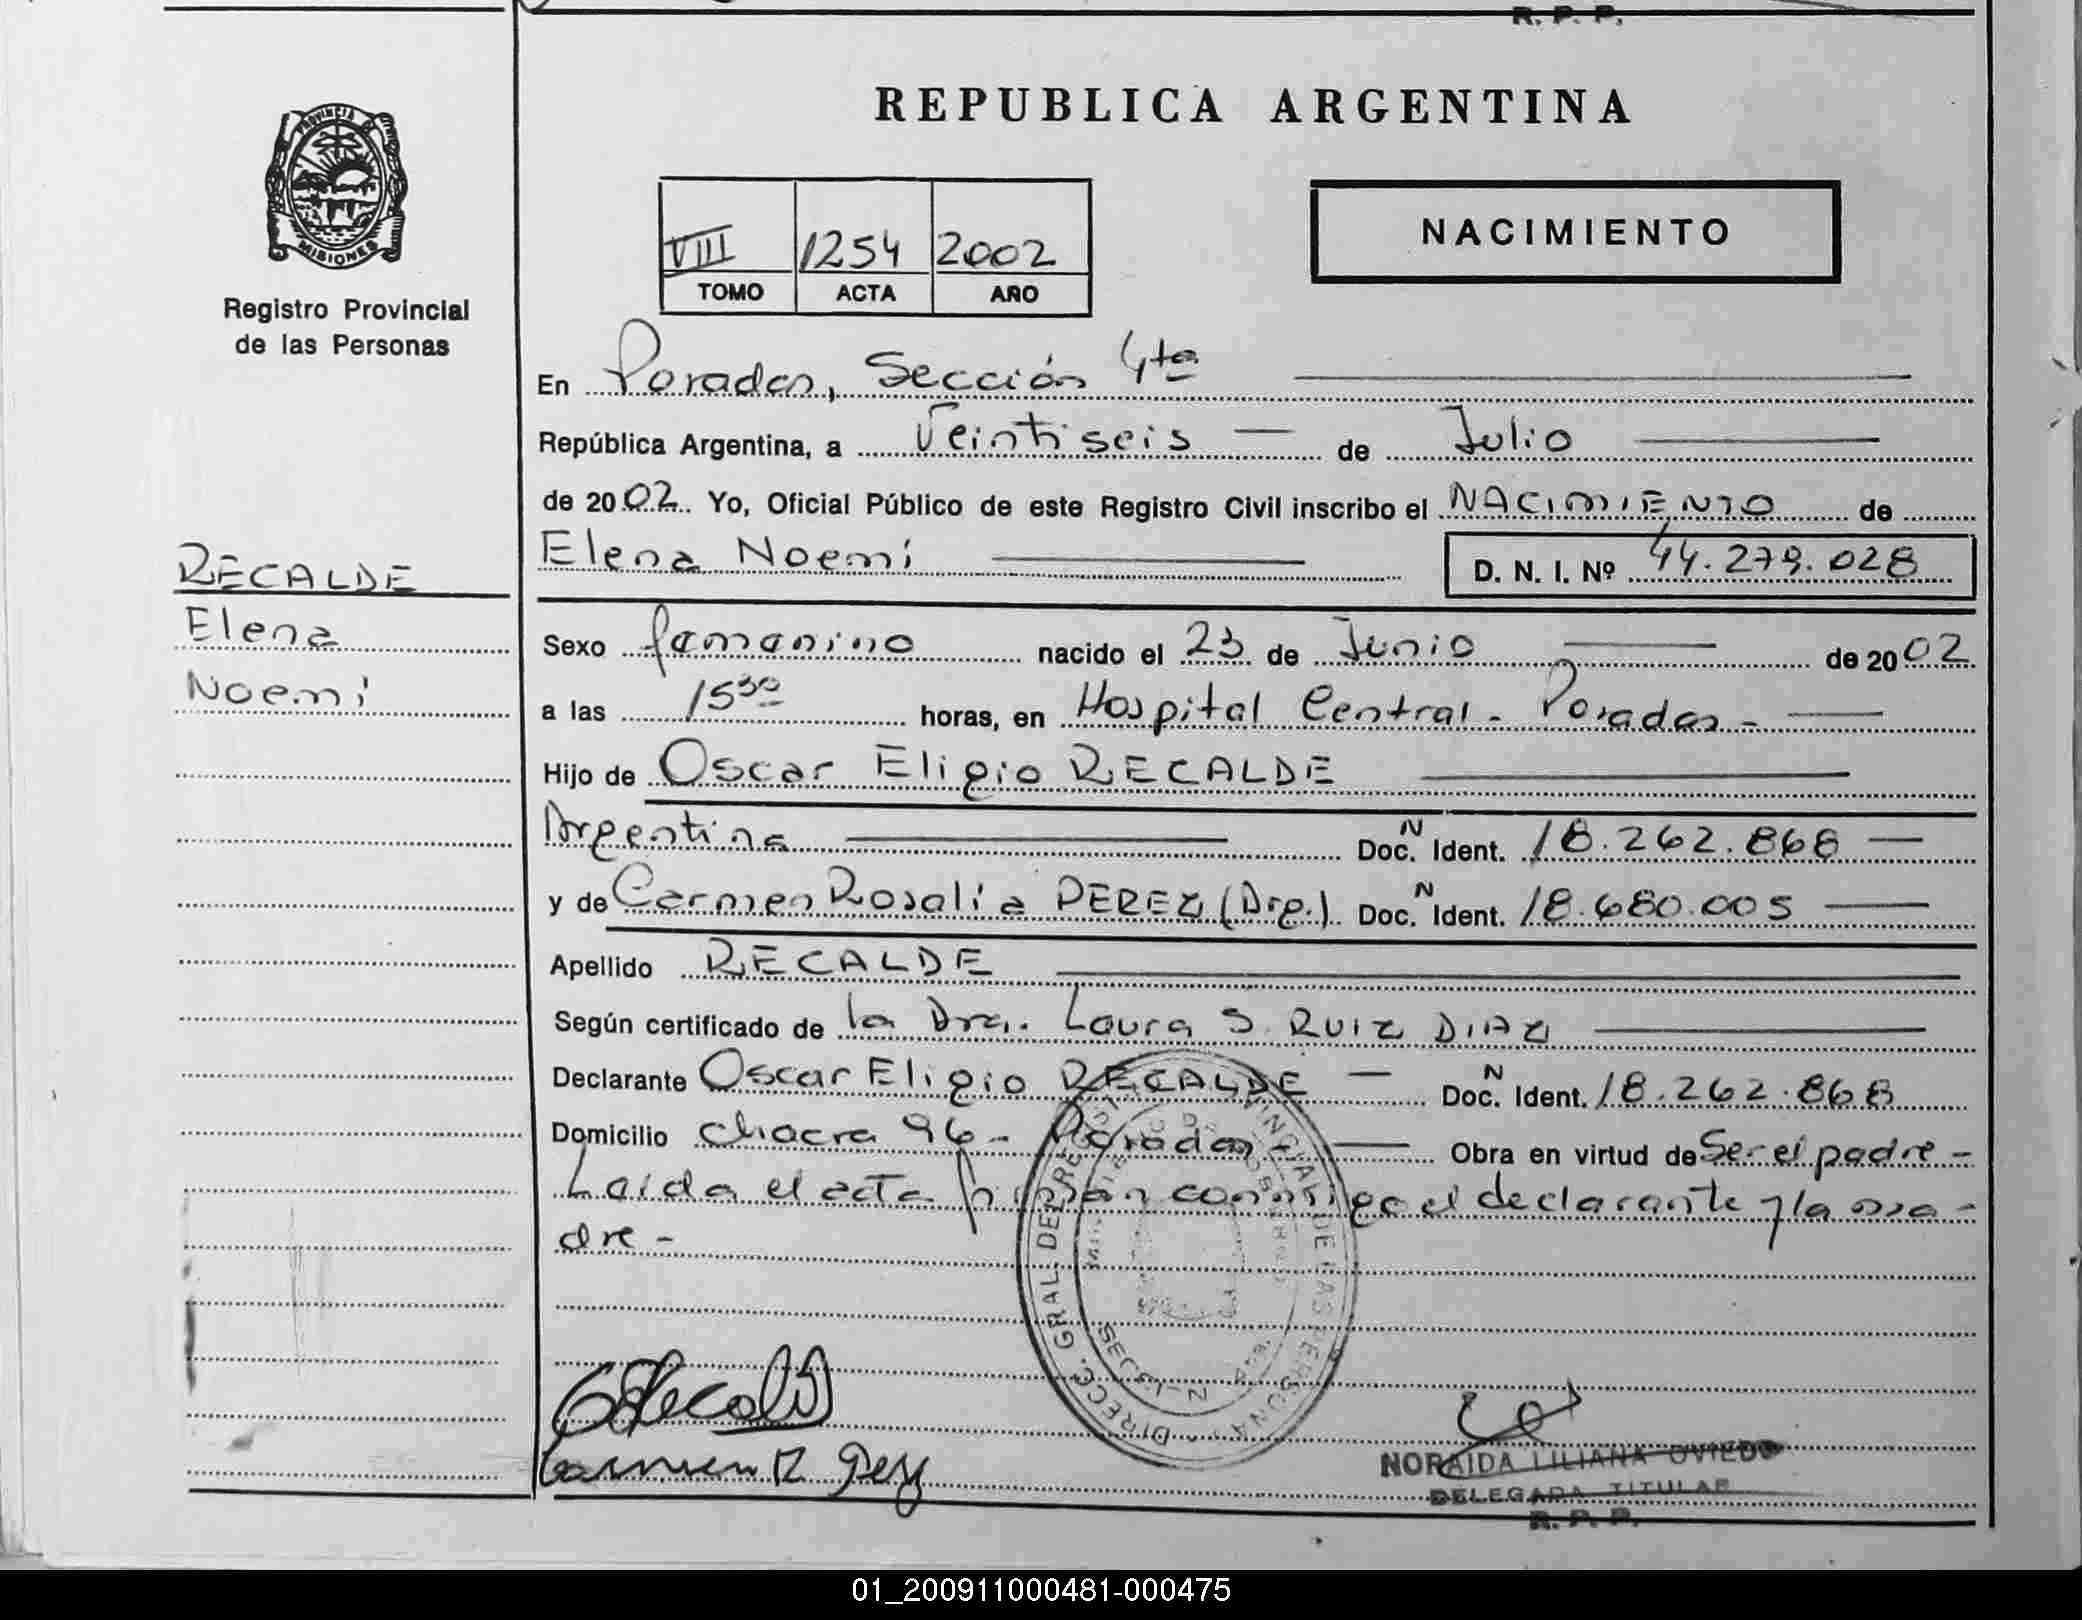 R. P. P.
REPUBLICA ARGENTINA
PROVINCIA DE
MISIONES
Registro Provincial
de las Personas
VIII 1254 2002
TOMO ACTA AÑO
NACIMIENTO
En Posadas, Sección 4ta
República Argentina, a Veintiseis — de Julio
de 2002. Yo, Oficial Público de este Registro Civil inscribo el NACIMIENTO de
Elena Noemi D. N. I. Nº 44.279.028
RECALDE
Elena
Noemi
Sexo femenino nacido el 23 de Junio de 2002
a las 15³⁰ horas, en Hospital Central - Posadas -
Hijo de Oscar Eligio RECALDE
Argentina Doc. N Ident. 18.262.868 —
y de Carmen Rosalia PEREZ (Arg.) Doc. N Ident. 18.680.005 —
Apellido RECALDE
Según certificado de la Dra. Laura S. RUIZ DIAZ
Declarante Oscar Eligio RECALDE — Doc. N Ident. 18.262.868
Domicilio Chacra 96 - Posadas - Obra en virtud de Ser el padre -
Leida el acta firman conmigo el declarante y la ma-
dre -
DIRECC. GRAL. DEL REGISTRO PROVINCIAL DE LAS PERSONAS
Carmen R. Perez
NORAIDA LILIANA OVIEDO
DELEGADA TITULAR
R. P. P.
01_200911000481-000475